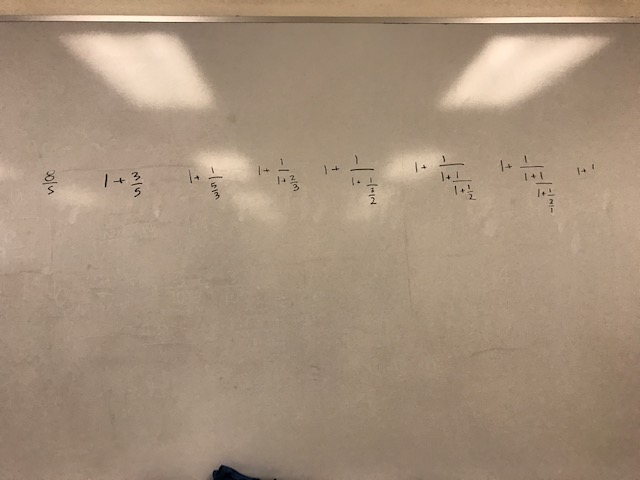 8/5   1 + 3/5   1 + 1/(5/3)   1 + 1/(1 + 2/3)   1 + 1/(1 + 1/(3/2))   1 + 1/(1 + 1/(1 + 1/2))   1 + 1/(1 + 1/(1 + 1/(2/1)))   1 + 1